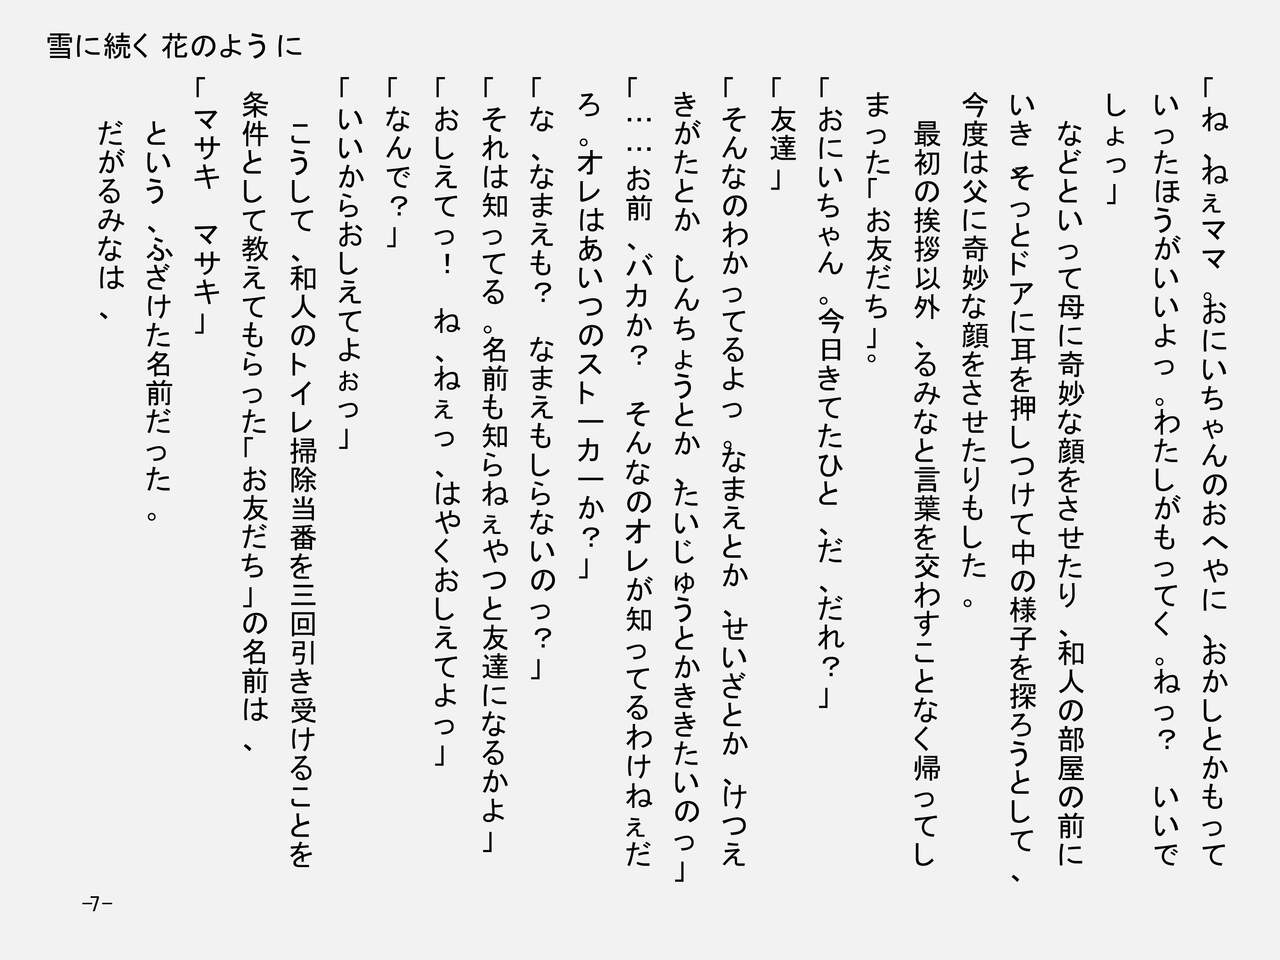 雪に続く 花のように
「ね、ねぇママ。おにいちゃんのおへやに、おかしとかもって
いったほうがいいよっ。わたしがもってく。ねっ？　いいで
しょっ」
　などといって母に奇妙な顔をさせたり、和人の部屋の前に
いき、そっとドアに耳を押しつけて中の様子を探ろうとして、
今度は父に奇妙な顔をさせたりもした。
　最初の挨拶以外、るみなと言葉を交わすことなく帰ってし
まった「お友だち」。
「おにいちゃん。今日きてたひと、だ、だれ？」
「友達」
「そんなのわかってるよっ。なまえとか、せいざとか、けつえ
きがたとか、しんちょうとか、たいじゅうとかききたいのっ」
「……お前、バカか？　そんなのオレが知ってるわけねぇだ
ろ。オレはあいつのストーカーか？」
「な、なまえも？　なまえもしらないのっ？」
「それは知ってる。名前も知らねぇやつと友達になるかよ」
「おしえてっ！　ね、ねぇっ、はやくおしえてよっ」
「なんで？」
「いいからおしえてよぉっ」
　こうして、和人のトイレ掃除当番を三回引き受けることを
条件として教えてもらった「お友だち」の名前は、
「マサキ　マサキ」
　という、ふざけた名前だった。
　だがるみなは、
-7-